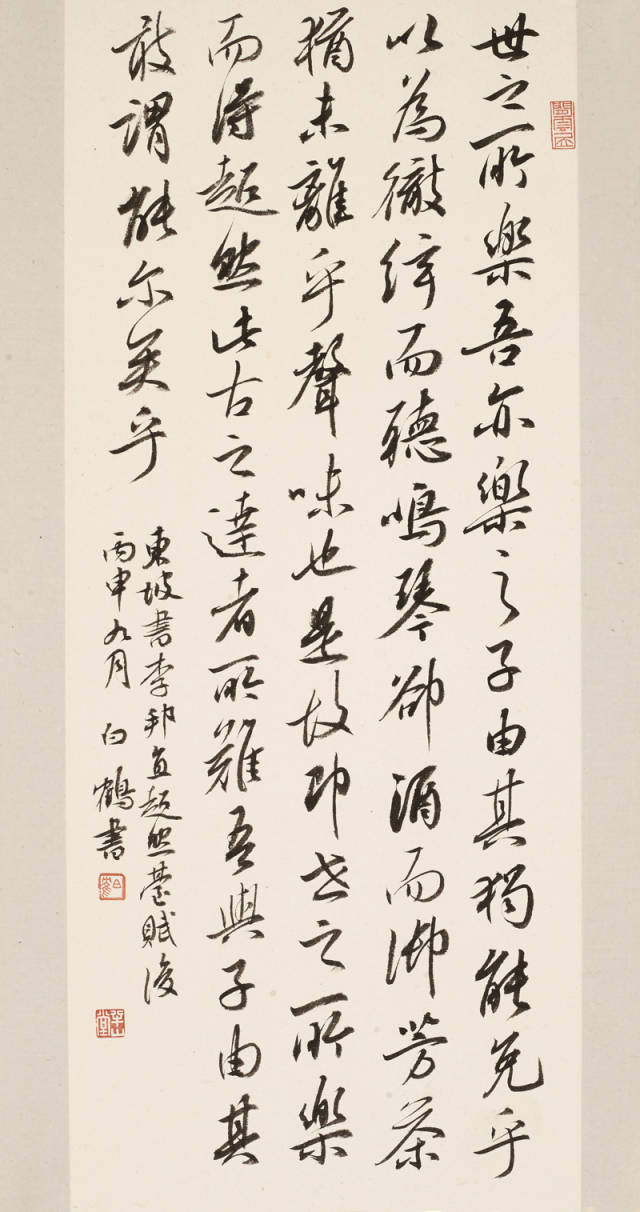 世之所樂吾亦樂之子由其獨能免乎
以為徹絃而聽鳴琴卻酒而御芳茶
猶未離乎聲味也是故即世之所樂
而得超然此古之達者所難吾與子由其
敢謂能尔矣乎
東坡書李邦直超然臺賦後
丙申九月 白鶴書
白鶴